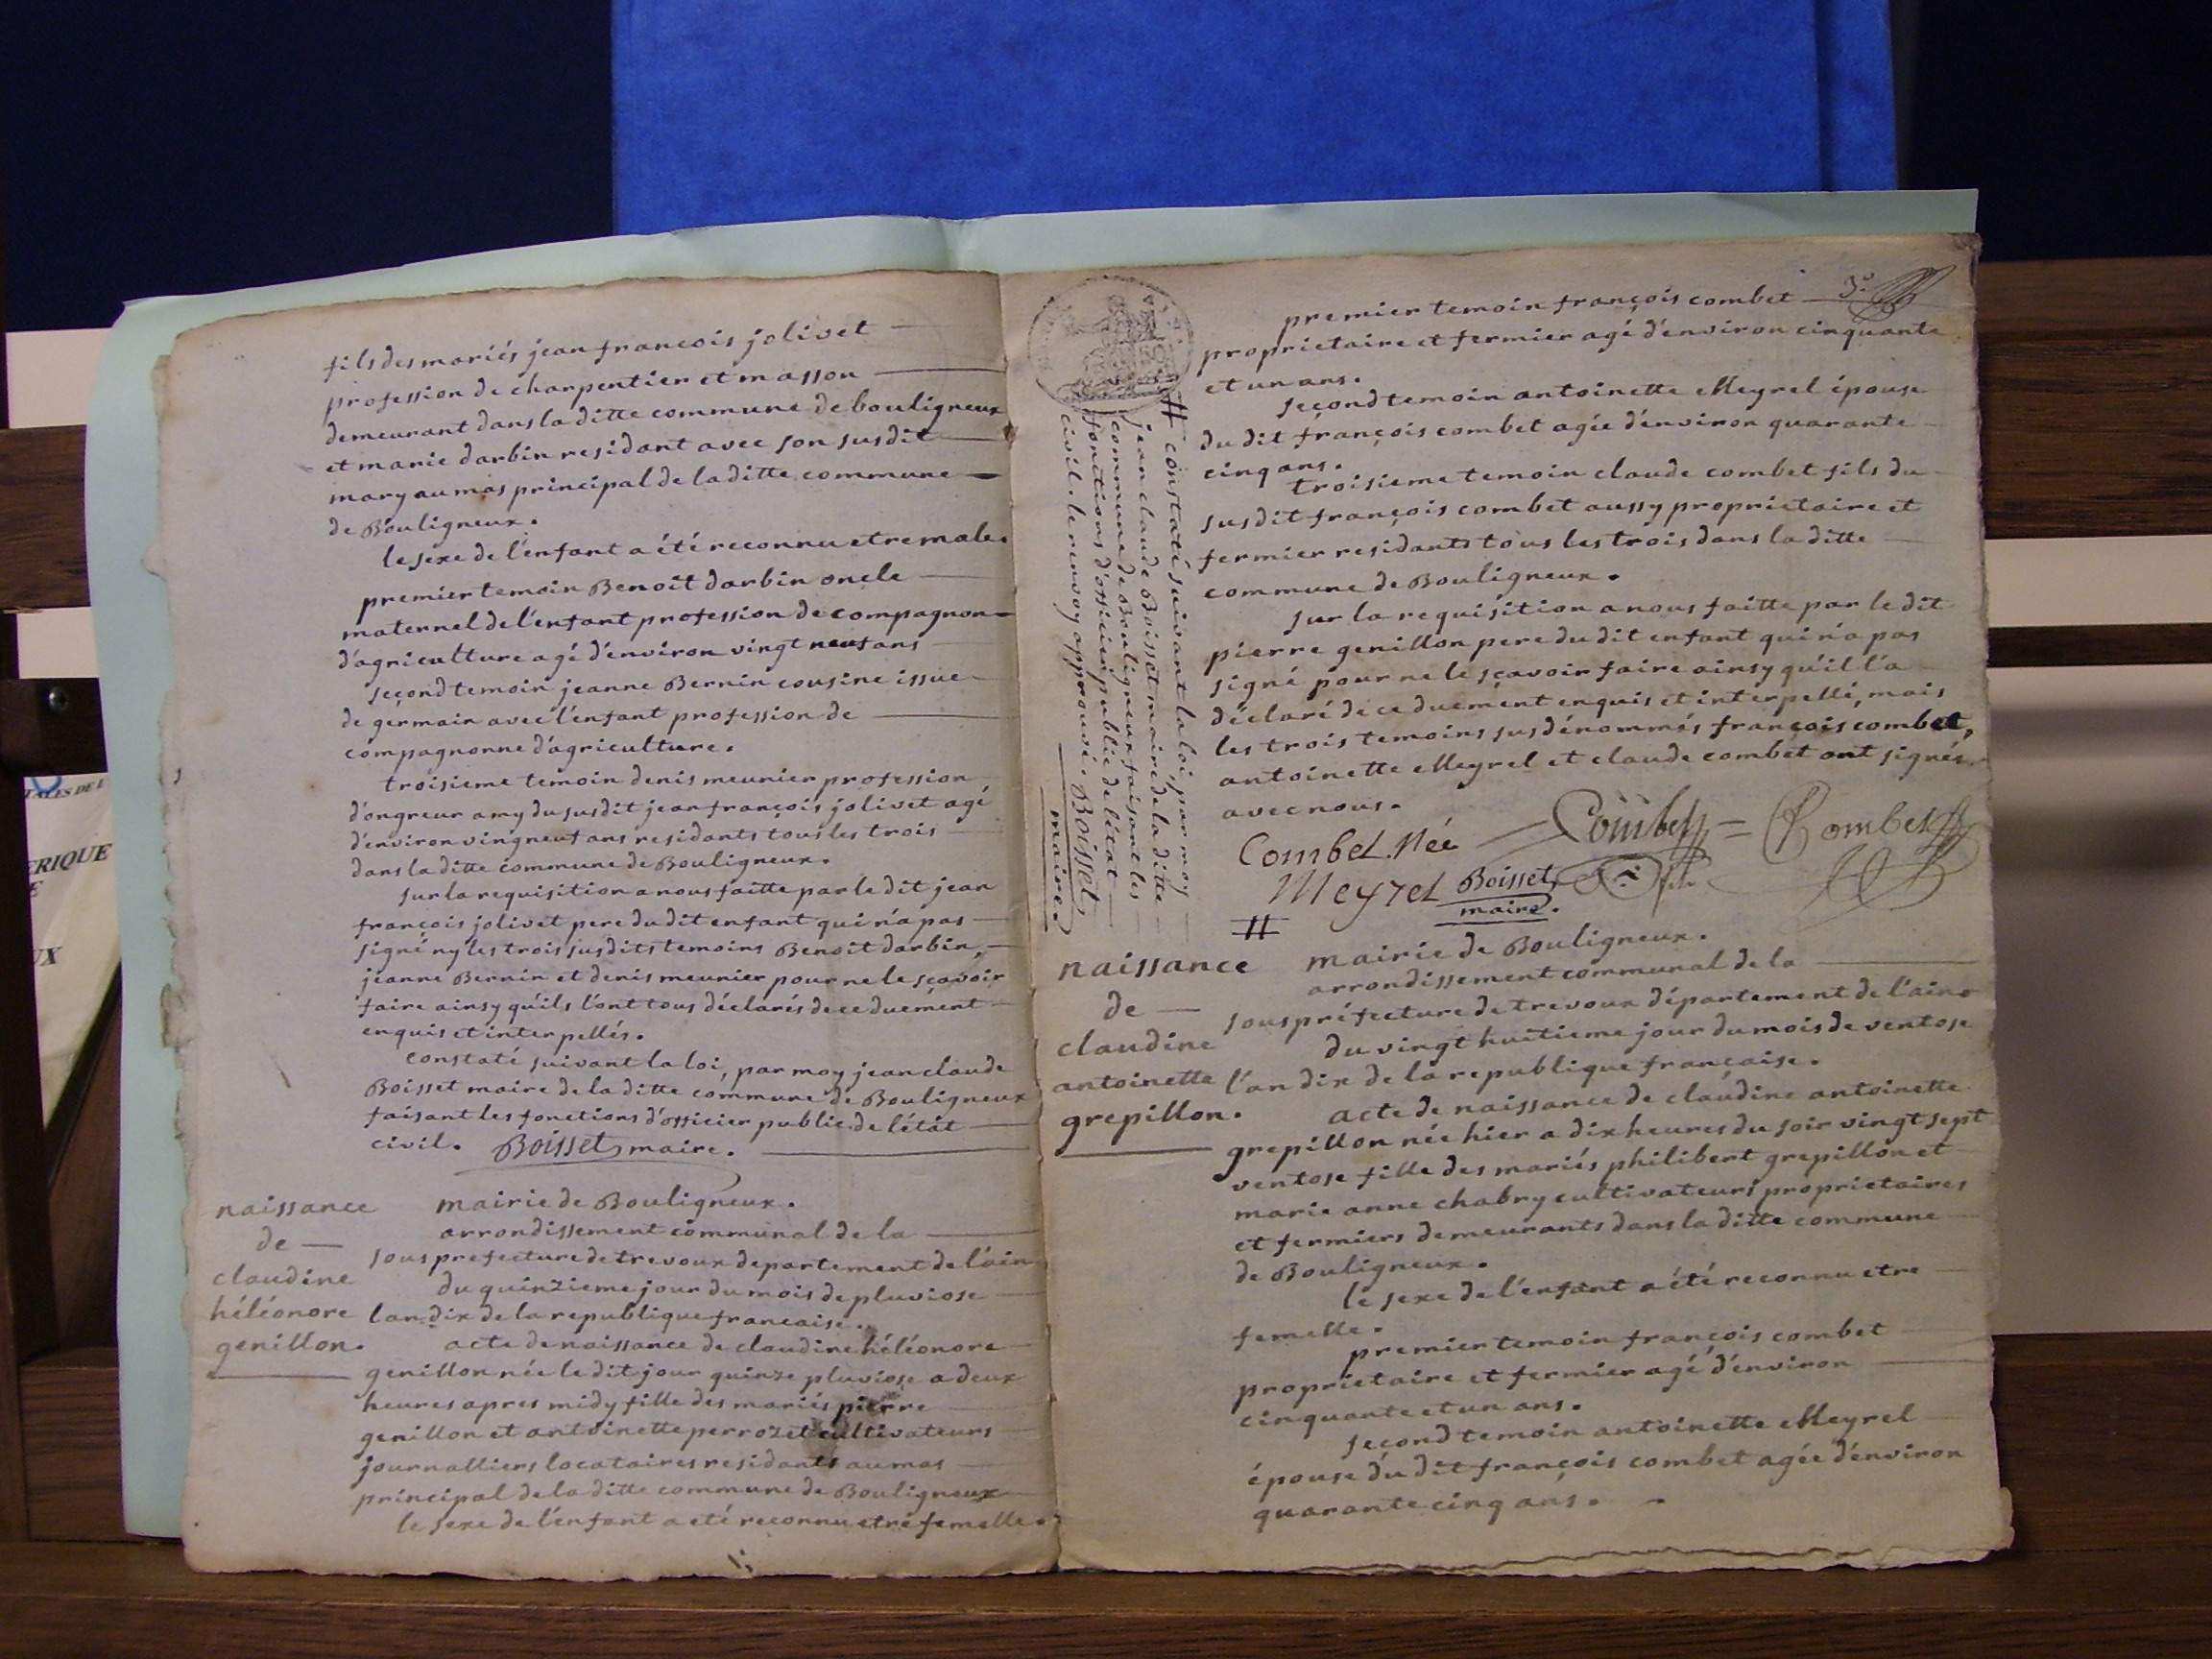 fils des mariés jean francois jolivet
profession de charpentier et masson
demeurant dans la ditte commune de bouligneux
et marie darbin residant avec son susdit
mary au mas principal de la ditte commune
de Bouligneux.
le sexe de l'enfant a été reconnu etre male.
premier temoin Benoit darbin oncle
maternel de l'enfant profession de compagnon
d'agriculture agé d'environ vingt neuf ans
second temoin jeanne Bernin cousine issue
de germain avec l'enfant profession de
compagnonne d'agriculture.
troisieme temoin denis meunier profession
d'ongreur amy du susdit jean françois jolivet agé
d'environ vingneuf ans residants tous les trois
dans la ditte commune de Bouligneux.
sur la requisition a nous faitte par le dit jean
françois jolivet pere du dit enfant qui n'a pas
signé ny les trois susdits temoins Benoit darbin,
jeanne Bernin et denis meunier pour ne le sçavoir
faire ainsy qu'ils l'ont tous déclarés de ce duement
enquis et interpellés.
constaté suivant la loi, par moy jean claude
Boisset maire de la ditte commune de Bouligneux
faisant les fonctions d'officier public de l'état
civil. Boisset maire.
naissance
de
claudine
héléonore
genillon.
mairie de Bouligneux.
arrondissement communal de la
sous prefecture de trevoux departement de l'ain
du quinzieme jour du mois de pluviose
l'an dix de la republique francaise.
acte de naissance de claudine héléonore
genillon née le dit jour quinze pluviose a deux
heures apres midy fille des mariés pierre
genillon et antoinette perrozet cultivateurs
journalliers locataires residants au mas
principal de la ditte commune de Bouligneux
le sexe de l'enfant a eté reconnu etre femelle.
# constaté suivant la loi, par moy
jean claude Boisset maire de la ditte
commune de Bouligneux faisant les
fonctions d'officier public de l'état
civil. le renvoy approuvé. Boisset
maire.
premier temoin françois combet
proprietaire et fermier agé d'environ cinquante
et un ans.
second temoin antoinette Meyrel épouse
du dit françois combet agée d'environ quarante
cinq ans.
troisieme temoin claude combet fils du
susdit françois combet aussy proprietaire et
fermier residants tous les trois dans la ditte
commune de Bouligneux.
sur la requisition a nous faitte par le dit
pierre genillon pere du dit enfant qui n'a pas
signé pour ne le sçavoir faire ainsy qu'il l'a
déclaré de ce duement enquis et interpellé, mais
les trois temoins susdénommés françois combet,
antoinette Meyrel et claude combet ont signés
avec nous.
Combet Née Combet = Combet
Meyrel Boisset
maire.
#
naissance
de
claudine
antoinette
grepillon.
mairie de Bouligneux.
arrondissement communal de la
sous préfecture de trevoux département de l'ain
du vingt huitieme jour du mois de ventose
l'an dix de la republique française.
acte de naissance de claudine antoinette
grepillon née hier a dix heures du soir vingt sept
ventose fille des mariés philibert grepillon et
marie anne chabry cultivateurs proprietaires
et fermiers demeurants dans la ditte commune
de Bouligneux.
le sexe de l'enfant a été reconnu etre
femelle.
premier temoin françois combet
proprietaire et fermier agé d'environ
cinquante et un ans.
second temoin antoinette Meyrel
épouse du dit françois combet agée d'environ
quarante cinq ans.